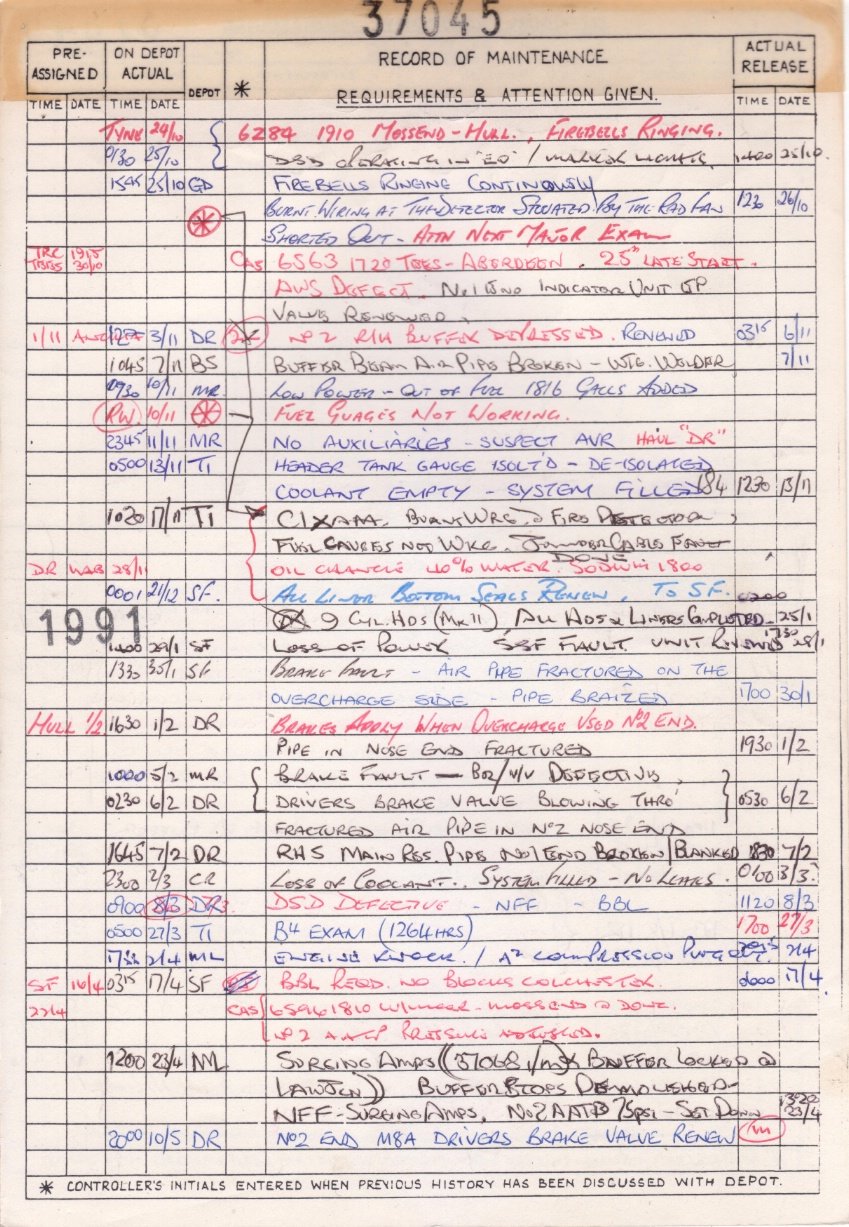 37045
PRE-ASSIGNED ON DEPOT ACTUAL DEPOT * RECORD OF MAINTENANCE REQUIREMENTS & ATTENTION GIVEN. ACTUAL RELEASE
TIME DATE TIME DATE TIME DATE
TYNE 24/10 6284 1910 MOSSEND-HULL., FIREBELLS RINGING.
0130 25/10 DSD OPERATING IN "EO" / MARKER LIGHTS 25/10
1545 25/10 GD FIREBELLS RINGING CONTINOUSLY
BURNT WIRING AT THE DETECTOR SITUATED BY THE RAD FAN 1230 26/10
SHORTED OUT - ATTN NEXT MAJOR EXAM
TRC 1915 CAS 6563 1720 TEES-ABERDEEN. 25" LATE START.
TEES 30/10 AWS DEFECT. No1 END INDICATOR UNIT
VALVE RENEWED.
1/11 3/11 DR No2 R/H BUFFER DEPRESSED. RENEWED 0315 6/11
1045 7/11 BS BUFFER BEAM AIR PIPE BROKEN - WTG. WELDER 7/11
0930 10/11 MR LOW POWER - OUT OF FUEL 1816 GALLS ADDED
RW. 10/11 FUEL GUAGES NOT WORKING.
2345 11/11 MR NO AUXILIARIES - SUSPECT AVR HAUL "DR"
0500 13/11 TI HEADER TANK GAUGE ISOLT'D - DE-ISOLATED
COOLANT EMPTY - SYSTEM FILLED 184 1230 13/11
1020 17/11 TI C EXAM. BURNT WRG. FIRE DETECTOR,
FUEL GAUGES NOT WKG. JUMPER CABLE FAULT
DONE
DR WAB 28/11 OIL CHANGE 40% WATER. SODIUM 1800
0001 21/12 SF. ALL LINER BOTTOM SEALS RENEW, TO SF.
9 CYL. HDS (MK II) ALL HDS & LINERS COMPLETED - 25/1
1991
1400 29/1 SF LOSS OF POWER SSF FAULT UNIT RENEWED 1730
1330 30/1 SF BRAKE FAULT - AIR PIPE FRACTURED ON THE
OVERCHARGE SIDE - PIPE BRAIZED 1700 30/1
HULL 1/2 1630 1/2 DR BRAKES APPLY WHEN OVERCHARGE USED No2 END.
PIPE IN NOSE END FRACTURED 1930 1/2
1000 5/2 MR BRAKE FAULT - DEFECTIVE,
0230 6/2 DR DRIVERS BRAKE VALVE BLOWING THRO' 0530 6/2
FRACTURED AIR PIPE IN No2 NOSE END
1645 7/2 DR RHS MAIN RES. PIPE No1 END BROKEN/BLANKED 1830 7/2
2300 2/3 CR LOSS OF COOLANT.. SYSTEM FILLED - NO LEAKS. 0400 3/3
0900 8/3 DR DSD DEFECTIVE - NFF - BBL 1120 8/3
0500 27/3 TI B4 EXAM (1264 HRS) 1700 27/3
1733 2/4 ML ENGINE KNOCK. / A2 COMPRESSION 2/4
SF 16/4 0315 17/4 SF BBL REQD. NO BLOCKS COLCHESTER. 0600 17/4
22/4 CAS 6S96 1810 - MOSSEND
No2 PRESSURE ADJUSTED.
1200 23/4 ML SURGING AMPS ((37068 BUFFER LOCKED @
LAWJCN)) BUFFER STOPS DEMOLISHED -
NFF - SURGING AMPS. No2 75psi - SET DOWN 1320 23/4
2000 10/5 DR No2 END M8A DRIVERS BRAKE VALVE RENEW
* CONTROLLER'S INITIALS ENTERED WHEN PREVIOUS HISTORY HAS BEEN DISCUSSED WITH DEPOT.